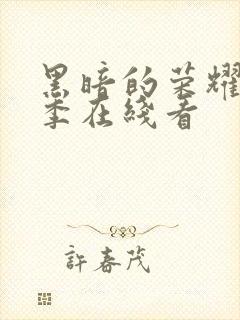 黑暗的荣耀
季在线看
許春茂